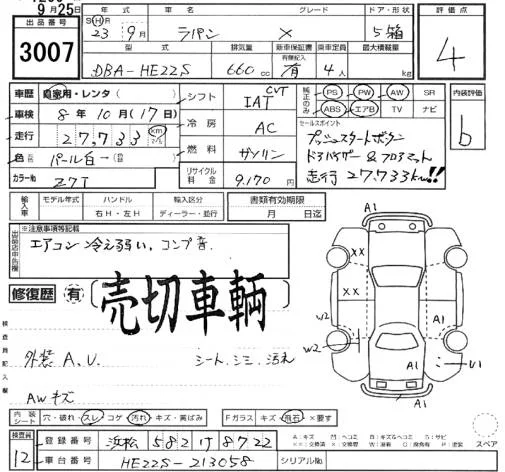 9月25日
年式
車名
グレード
ドア・形状
評価点
出品番号
3007
SH R
23 9月
ラパン
X
5 箱
4
型式
排気量
新車保証書
乗車定員
最大積載量
DBA-HE22S
660 cc
有無記入
有
4人
kg
車歴
自家用・レンタ( )
シフト
CVT
IAT
純正のみ
PS
PW
AW
SR
ABS
エアB
TV
ナビ
内装評価
b
車検
8年 10月 (17日)
冷房
AC
セールスポイント
プッシュスタートボタン
ドアバイザー & フロアマット
走行 27,733km!!
走行
27,733
km
マイル
燃料
ガソリン
色
パール白
カラーNo
Z7T
リサイクル料金
9,170 円
輸入車
モデル年式
ハンドル
右H・左H
輸入区分
ディーラー・並行
書類有効期限
月 日迄
※注意事項等記載
エアコン冷え弱い、コンプ音
修復歴
有
売切車輌
検査員記入欄
外装 A、U、
シート、シミ、汚れ
AWキズ
A1
XX
XX
W2
W2
A1
A1
U1
A1
内装シート
穴・破れ・スレ・コゲ・汚れ・キズ・黄ばみ
Fガラス
キズ・飛石・×要す
スペア
検査員
12
登録番号
浜松 582 ワ 8722
車台番号
HE22S-213058
シリアルNo.